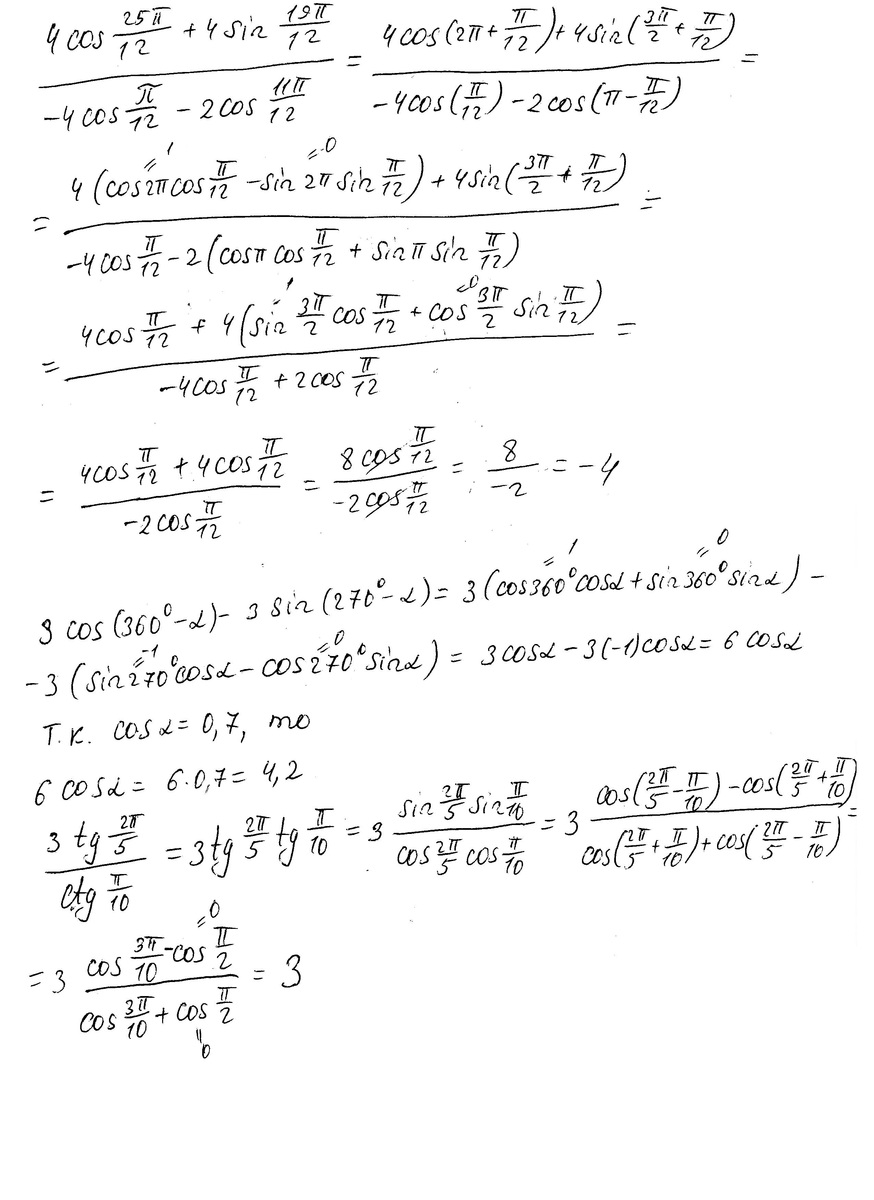 (4cos 25π/12 + 4sin 19π/12)/(-4cos π/12 - 2cos 11π/12) = (4cos(2π+π/12)+4sin(3π/2+π/12))/(-4cos(π/12)-2cos(π-π/12)) =
= (4(cos2π cos π/12 - sin 2π sin π/12) + 4sin(3π/2 + π/12))/(-4cos π/12 - 2(cosπ cos π/12 + sinπ sin π/12)) =
= (4cos π/12 + 4(sin 3π/2 cos π/12 + cos 3π/2 sin π/12))/(-4cos π/12 + 2cos π/12) =
= (4cos π/12 + 4cos π/12)/(-2cos π/12) = (8cos π/12)/(-2cos π/12) = 8/-2 = -4
3 cos(360°-α) - 3 sin(270°-α) = 3(cos360°cosα + sin360°sinα) -
-3(sin270°cosα - cos270°sinα) = 3cosα - 3(-1)cosα = 6cosα
Т.к. cosα = 0,7, то
6cosα = 6·0,7 = 4,2
(3 tg 2π/5)/(ctg π/10) = 3tg 2π/5 tg π/10 = 3 (sin 2π/5 sin π/10)/(cos 2π/5 cos π/10) = 3 (cos(2π/5-π/10)-cos(2π/5+π/10))/(cos(2π/5+π/10)+cos(2π/5-π/10)) =
= 3 (cos 3π/10 - cos π/2)/(cos 3π/10 + cos π/2) = 3